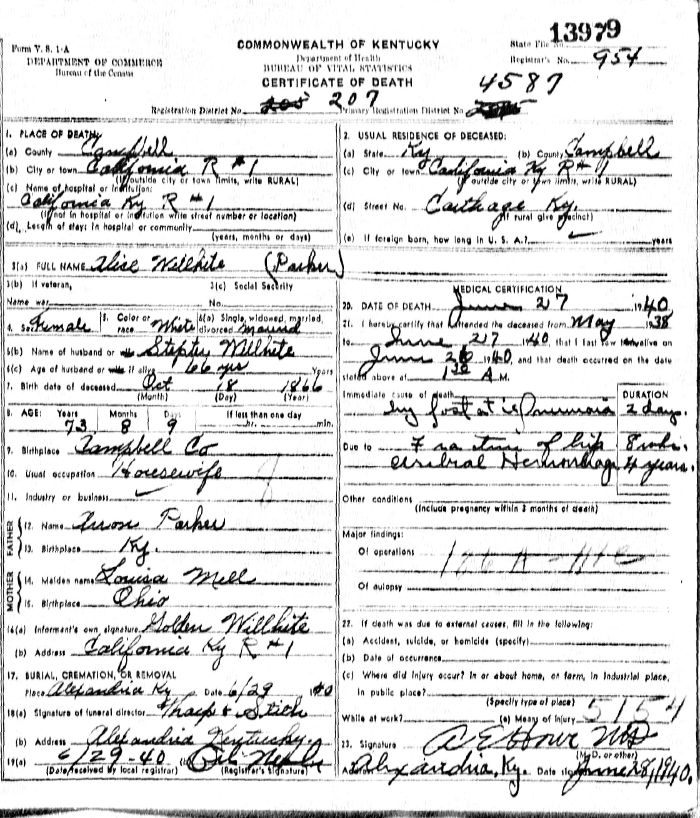 13979
Form V. S. 1-A
DEPARTMENT OF COMMERCE
Bureau of the Census
COMMONWEALTH OF KENTUCKY
Department of Health
BUREAU OF VITAL STATISTICS
CERTIFICATE OF DEATH
State File No.
Registrar's No. 954
4587
Registration District No. 207 Primary Registration District No.
1. PLACE OF DEATH:
(a) County Campbell
(b) City or town California R #1
(If outside city or town limits, write RURAL)
(c) Name of hospital or institution:
California Ky R #1
(If not in hospital or institution write street number or location)
(d) Length of stay: In hospital or community
(years, months or days)
2. USUAL RESIDENCE OF DECEASED:
(a) State Ky (b) County Campbell
(c) City or town California Ky R #1
(If outside city or town limits, write RURAL)
(d) Street No. Carthage Ky.
(If rural give precinct)
(e) If foreign born, how long in U. S. A.? years
3(a) FULL NAME Alice Willhite (Parker)
3(b) If veteran, 3(c) Social Security
Name war No.
4. Sex Female 5. Color or race White 6(a) Single, widowed, married, divorced married
6(b) Name of husband or Willhite
6(c) Age of husband or if alive 66 yrs Years
7. Birth date of deceased Oct 18 1866
(Month) (Day) (Year)
8. AGE: Years Months Days If less than one day
73 8 9 hr. min.
9. Birthplace Campbell Co
10. Usual occupation Housewife
11. Industry or business
FATHER
12. Name Parker
13. Birthplace Ky.
MOTHER
14. Maiden name Louisa Mell
15. Birthplace Ohio
16(a) Informent's own signature Golden Willhite
(b) Address California Ky R #1
17. BURIAL, CREMATION, OR REMOVAL
Place Alexandria Ky Date 6/29 1940
18(a) Signature of funeral director Tharp & Stith
(b) Address Alexandria Kentucky
19(a) 6/29-40 (b)
(Date received by local registrar) (Registrar's signature)
MEDICAL CERTIFICATION
20. DATE OF DEATH June 27 1940
21. I hereby certify that I attended the deceased from May 1938
to June 27 1940, that I last saw alive on
June 26 1940, and that death occurred on the date
stated above at 1 30 A M.
Immediate cause of death DURATION
Hypostatic Pneumonia 2 days.
Due to Fracture of hip 8 wks.
Cerebral Hemorrhage 4 years.
Other conditions
(Include pregnancy within 3 months of death)
Major findings:
Of operations
Of autopsy
22. If death was due to external causes, fill in the following:
(a) Accident, suicide, or homicide (specify)
(b) Date of occurrence
(c) Where did injury occur? In or about home, on farm, in industrial place,
in public place?
(Specify type of place)
While at work? (e) Means of injury 5154
23. Signature MD
(M. D. or other)
Address Alexandria, Ky. Date signed June 28, 1940.